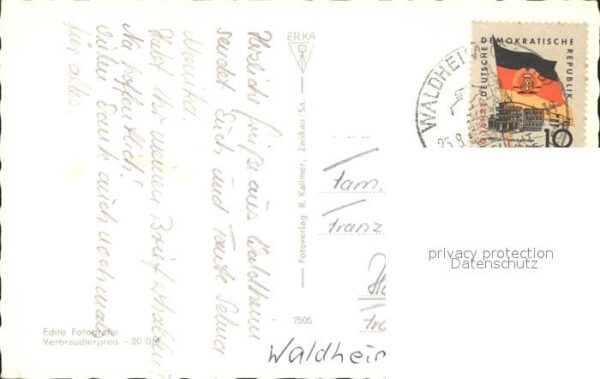 Herzliche Grüße aus Waldheim
sendet Euch und Tante Selma
Monika.
Habt Ihr meinen Brief erhalten?
Na hoffentlich!
Vielen Dank auch nochmals
für alles.
Echte Fotografie
Verbraucherpreis -.20 DM
ERKA
Fotoverlag R. Kallmer, Zwickau/Sa.
7505
WALDHEIM
25.8.
10 JAHRE DEUTSCHE DEMOKRATISCHE REPUBLIK
10
Fam.
Franz
Waldheim
privacy protection
Datenschutz